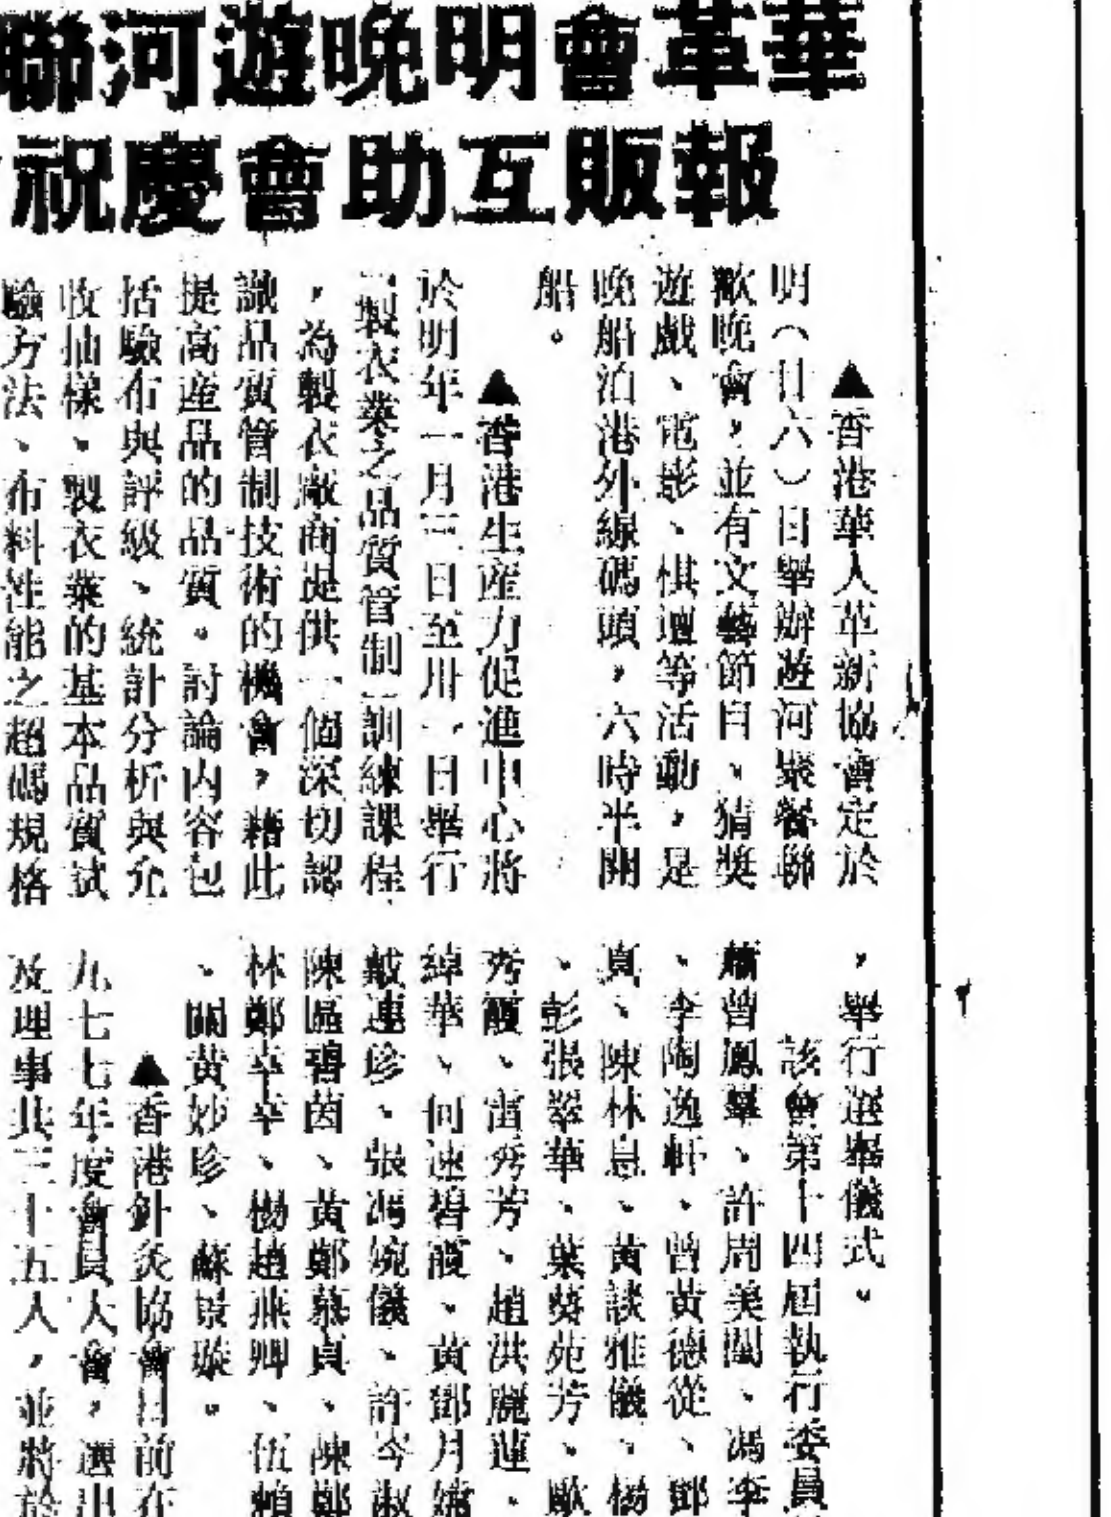 華革會明晚遊河聯
報販互助會慶祝
▲香港華人革新協會定於
明（廿六）日舉辦遊河聚餐聯
歡晚會，並有文藝節目、猜獎
遊戲、電影、棋壇等活動，是
晚船泊港外線碼頭，六時半開
船。
▲香港生産力促進中心將
於明年一月三日至卅一日舉行
「製衣業之品質管制」訓練課程
，為製衣廠商提供一個深切認
識品質管制技術的機會，藉此
提高産品的品質。討論内容包
括驗布與評級、統計分析與允
收抽樣、製衣業的基本品質試
驗方法、布料性能之超碼規格
，舉行選舉儀式。
該會第十四屆執行委員
蕭曾鳳羣、許周美蘭、馮李
、李陶逸軒、曾黃德從、鄧
真、陳林息、黃談雅儀、楊
、彭張翠華、葉葵苑芳、歐
秀霞、雷秀芳、趙洪麗蓮、
綽華、何速碧霞、黃鄧月嫦
戴連珍、張馮婉儀、許岑淑
陳區碧茵、黃鄭慕貞、陳鄭
林鄭幸幸、楊趙燕卿、伍賴
、關黃妙珍、蘇景璇。
▲香港針灸協會日前在
九七七年度會員大會，選出
及理事共三十五人，並將於